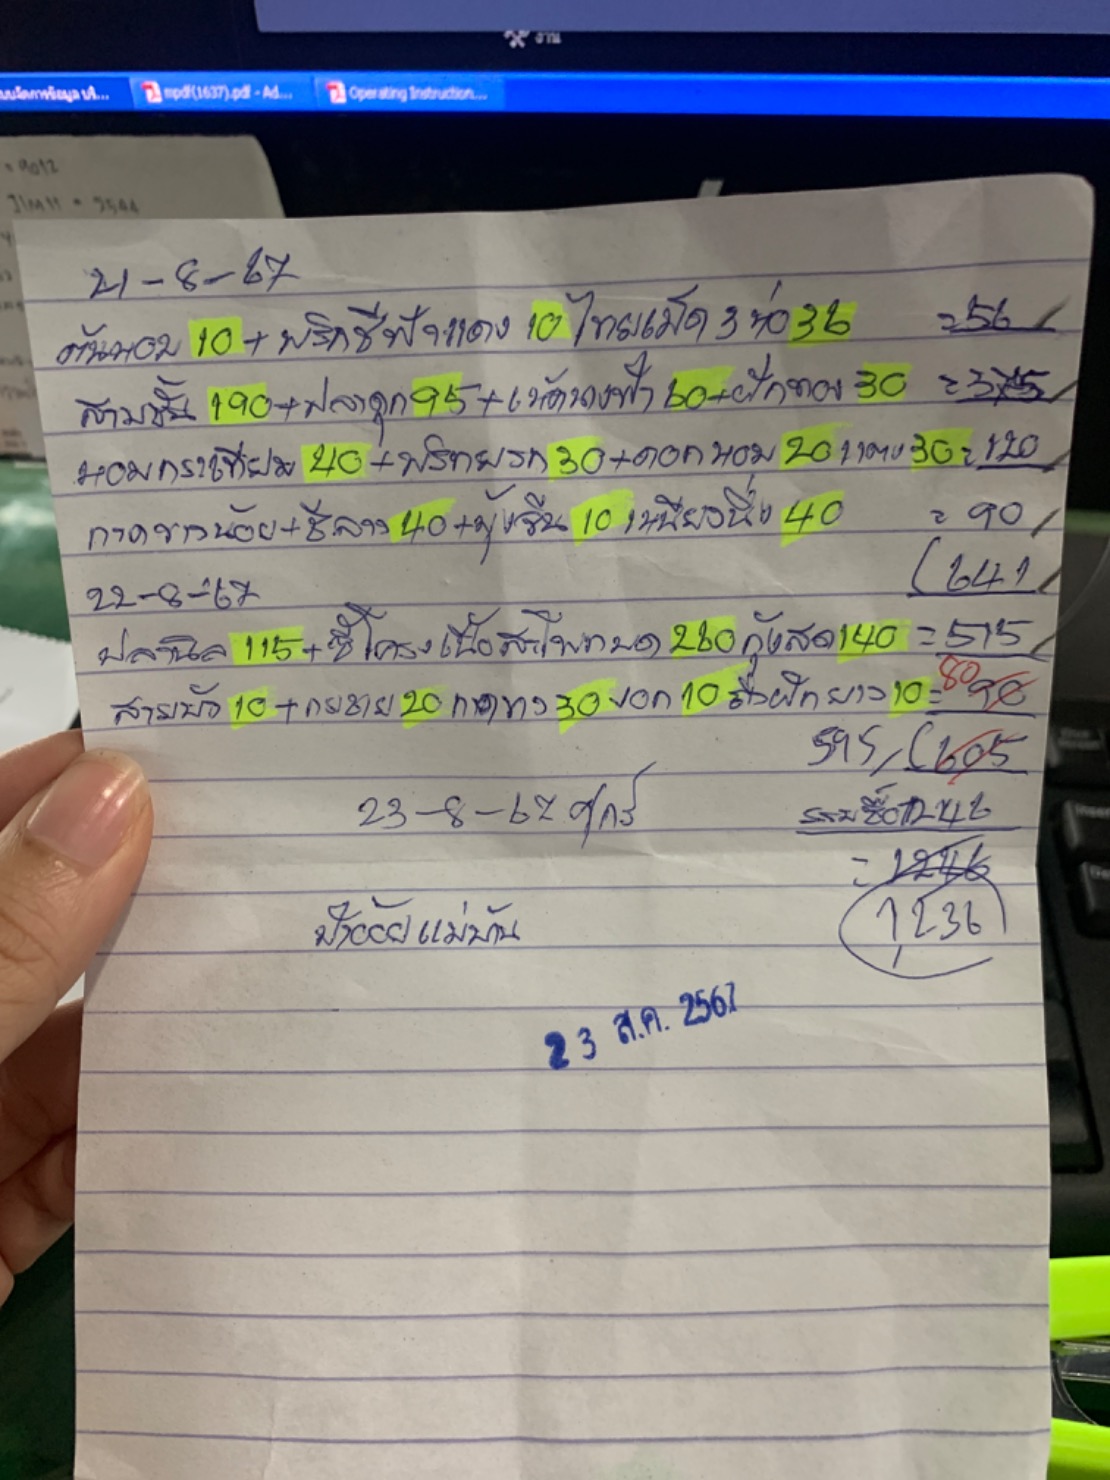 งาน
mpdf(1637).pdf - Ad...
Operating Instruction...
21-8-67
ต้นหอม 10 + พริกชี้ฟ้าแดง 10 ไทยเม็ด 3 ห่อ 36 = 56
สามชั้น 190 + ปลาดุก 95 + เห็ดนางฟ้า 60 + ฟักทอง 30 = 375
หอมกระเทียม 40 + พริกหยวก 30 + ดอกหอม 20 แตง 30 = 120
กาดขาวน้อย + ชีลาว 40 + บุ้งจีน 10 เหนียวนึ่ง 40 = 90
(641
22-8-67
ปลานิล 115 + ซี่โครงเนื้อสะโพกบด 260 กุ้งสด 140 = 515
สายบัว 10 + กุยช่าย 20 กาดขาว 30 บอก 10 ถั่วฝักยาว 10 = 80 90
595 (605
23-8-67 ศุกร์ รวมซื้อ 1246
= 1246
1,236
ป้าอ้อย แม่บ้าน
23 ส.ค. 2567